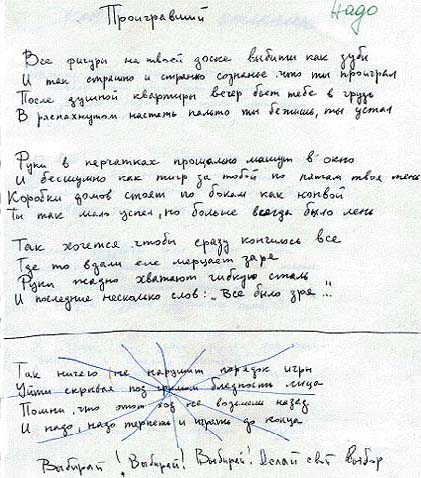 Проигравший
Надо
Все фигуры на твоей доске выбиты как зубы
И так страшно и странно сознанье что ты проиграл
После душной квартиры вечер бьет тебе в грудь
В распахнутом настежь пальто ты бежишь, ты устал
Руки в перчатках прощально машут в окно
И бесшумно как тигр за тобой по пятам твоя тень
Коробки домов стоят по бокам как конвой
Ты так мало успел, но больше всегда было лень
Так хочется чтобы сразу кончилось все
Где то вдали еле мерцает заря
Руки жадно хватают гибкую сталь
И последние несколько слов: "Все было зря..."
Так ничего не нарушит порядок игры
Уйти скрывая под гримом бледность лица
Помни, что этот ход не возьмёшь назад
И надо, надо терпеть и играть до конца
Выбирай! Выбирай! Выбирай! Делай свой выбор